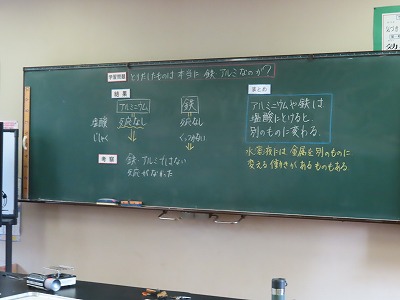 学習問題 とりだしたものは本当に鉄 アルミなのか?
結果
アルミニウム 鉄
塩酸 反応なし 反応なし
じしゃく くっつかない
考察 鉄・アルミではない
反応がなかった
まとめ
アルミニウムや鉄は、
塩酸にとけると、
別のものに変わる。
水溶液には金属を別のものに
変える働きがあるものもある